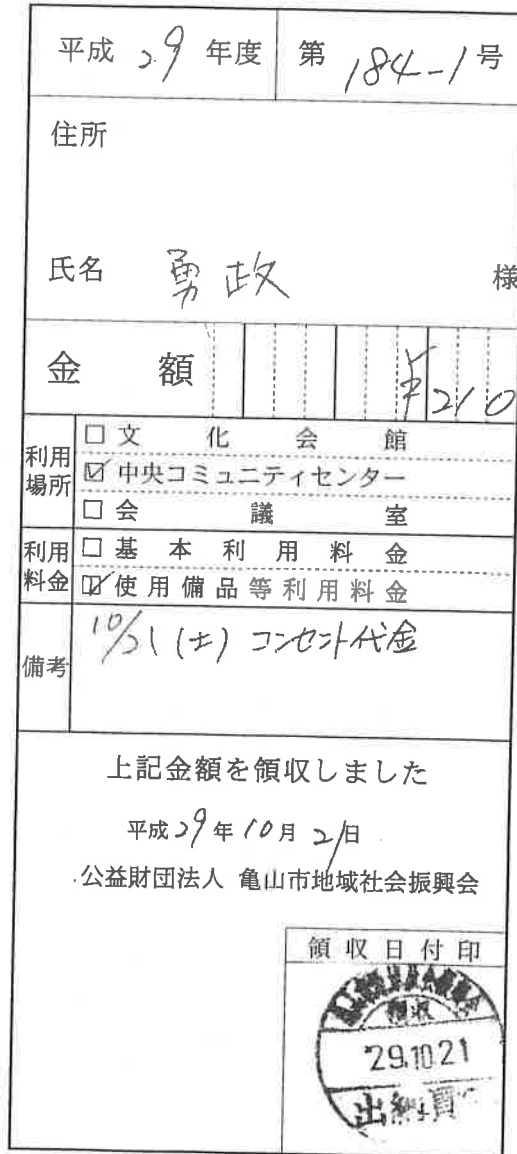 平成 29 年度 第 184-1 号
住所
氏名 勇政 様
金額 ¥210
利用場所
□ 文化会館
☑ 中央コミュニティセンター
□ 会議室
利用料金
□ 基本利用料金
☑ 使用備品等利用料金
備考
10/21 (土) コンセント代金
上記金額を領収しました
平成 29 年 10 月 21 日
公益財団法人 亀山市地域社会振興会
領収日付印
領収
29.10.21
出納員